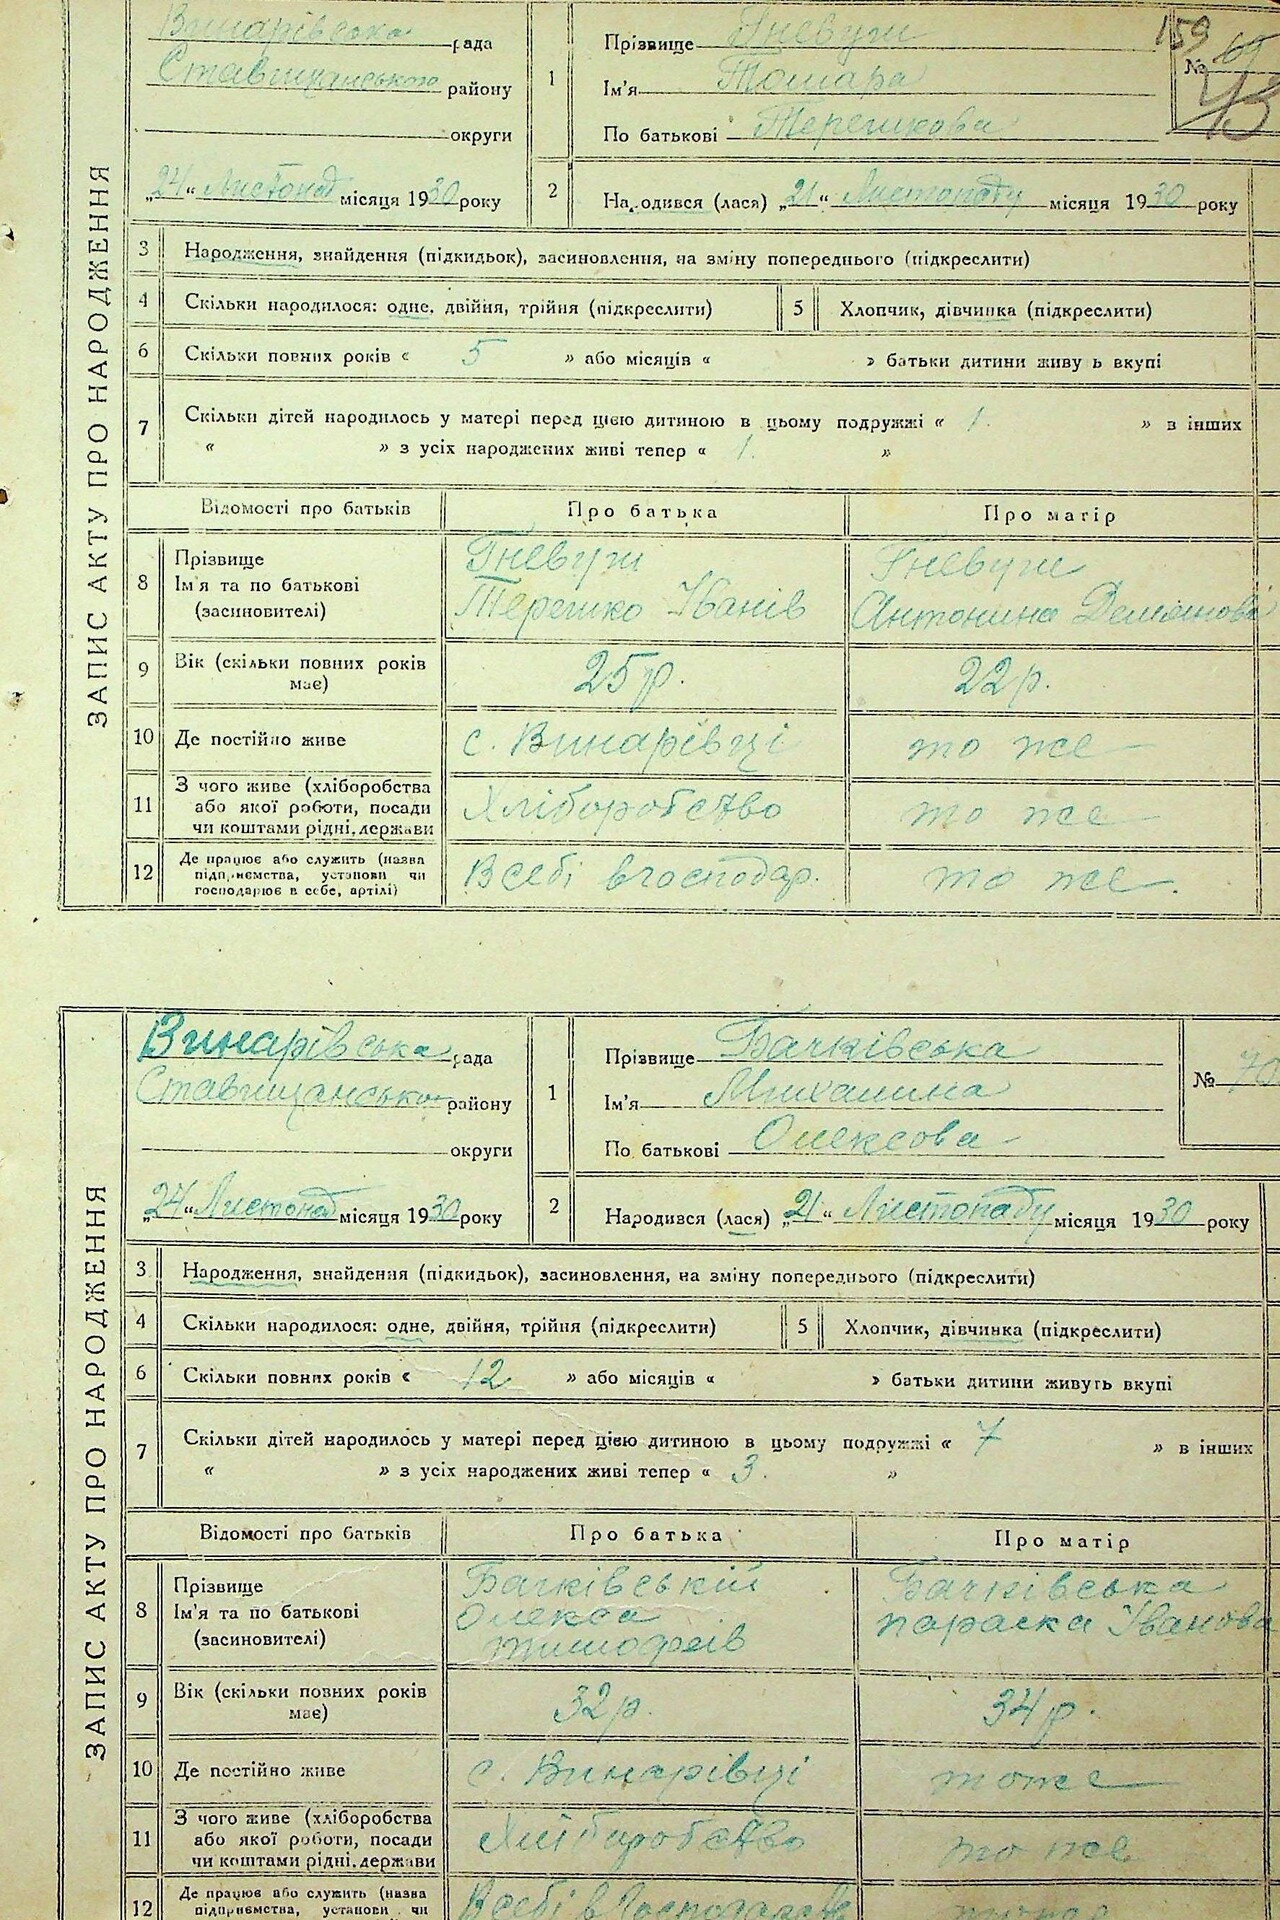 ЗАПИС АКТУ ПРО НАРОДЖЕННЯ
Винарівська рада
Ставищанського району
округи
„24“ Листопад місяця 1930 року
1
Прізвище Гневуш
Ім'я Томара
По батькові Терешкова
159
№ 69
43
2
Народився (лася) „21“ Листопаду місяця 1930 року
3 Народження, знайдення (підкидьок), засиновлення, на зміну попереднього (підкреслити)
4 Скільки народилося: одне, двійня, трійня (підкреслити) 5 Хлопчик, дівчинка (підкреслити)
6 Скільки повних років « 5 » або місяців « » батьки дитини живу ь вкупі
7 Скільки дітей народилось у матері перед цією дитиною в цьому подружжі « 1. » в інших
« » з усіх народжених живі тепер « 1. »
Відомості про батьків Про батька Про матір
8 Прізвище
Ім'я та по батькові
(засиновителі)
Гневуш
Терешко Іванів
Гневуш
Антонина Демянова
9 Вік (скільки повних років
має)
25 р.
22 р.
10 Де постійно живе с. Винарівці то же
11 З чого живе (хліборобства
або якої роботи, посади
чи коштами рідні, держави
Хліборобство
то же
12 Де працює або служить (назва
підприємства, установи чи
господарює в себе, артілі)
В себі в господар.
то же.
ЗАПИС АКТУ ПРО НАРОДЖЕННЯ
Винарівська рада
Ставищансько району
округи
„24“ Листопад місяця 1930 року
1
Прізвище Бачківська
Ім'я Михалина
По батькові Олексова
№ 70
2
Народився (лася) „21“ Листопаду місяця 1930 року
3 Народження, знайдення (підкидьок), засиновлення, на зміну попереднього (підкреслити)
4 Скільки народилося: одне, двійня, трійня (підкреслити) 5 Хлопчик, дівчинка (підкреслити)
6 Скільки повних років « 12 » або місяців « » батьки дитини живуть вкупі
7 Скільки дітей народилось у матері перед цією дитиною в цьому подружжі « 7 » в інших
« » з усіх народжених живі тепер « 3. »
Відомості про батьків Про батька Про матір
8 Прізвище
Ім'я та по батькові
(засиновителі)
Бачківській
Олекса
Тимофеів
Бачківська
параска Іванова
9 Вік (скільки повних років
має)
32 р.
34 р.
10 Де постійно живе с. Винарівці тоже
11 З чого живе (хліборобства
або якої роботи, посади
чи коштами рідні, держави
Хліборобство
то же
12 Де працює або служить (назва
підприємства, установи чи
В себі в Господарстві